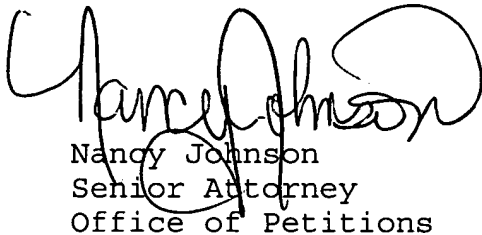 Nancy Johnson
Nancy Johnson
Senior Attorney
Office of Petitions